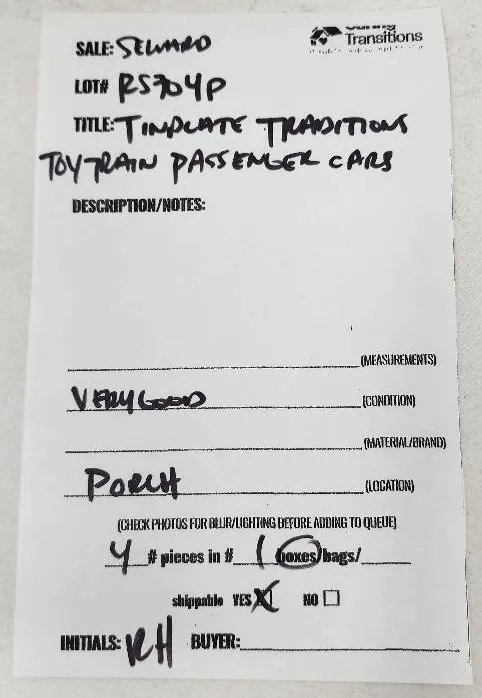 Caring
Transitions
SALE: SEWARD
LOT# RS704P
TITLE: TINPLATE TRADITIONS
TOY TRAIN PASSENGER CARS
DESCRIPTION/NOTES:
(MEASUREMENTS)
VERY GOOD (CONDITION)
(MATERIAL/BRAND)
PORCH (LOCATION)
(CHECK PHOTOS FOR BLUR/LIGHTING BEFORE ADDING TO QUEUE)
4 # pieces in # 1 boxes/bags/
shippable YES X NO
INITIALS: RH BUYER: